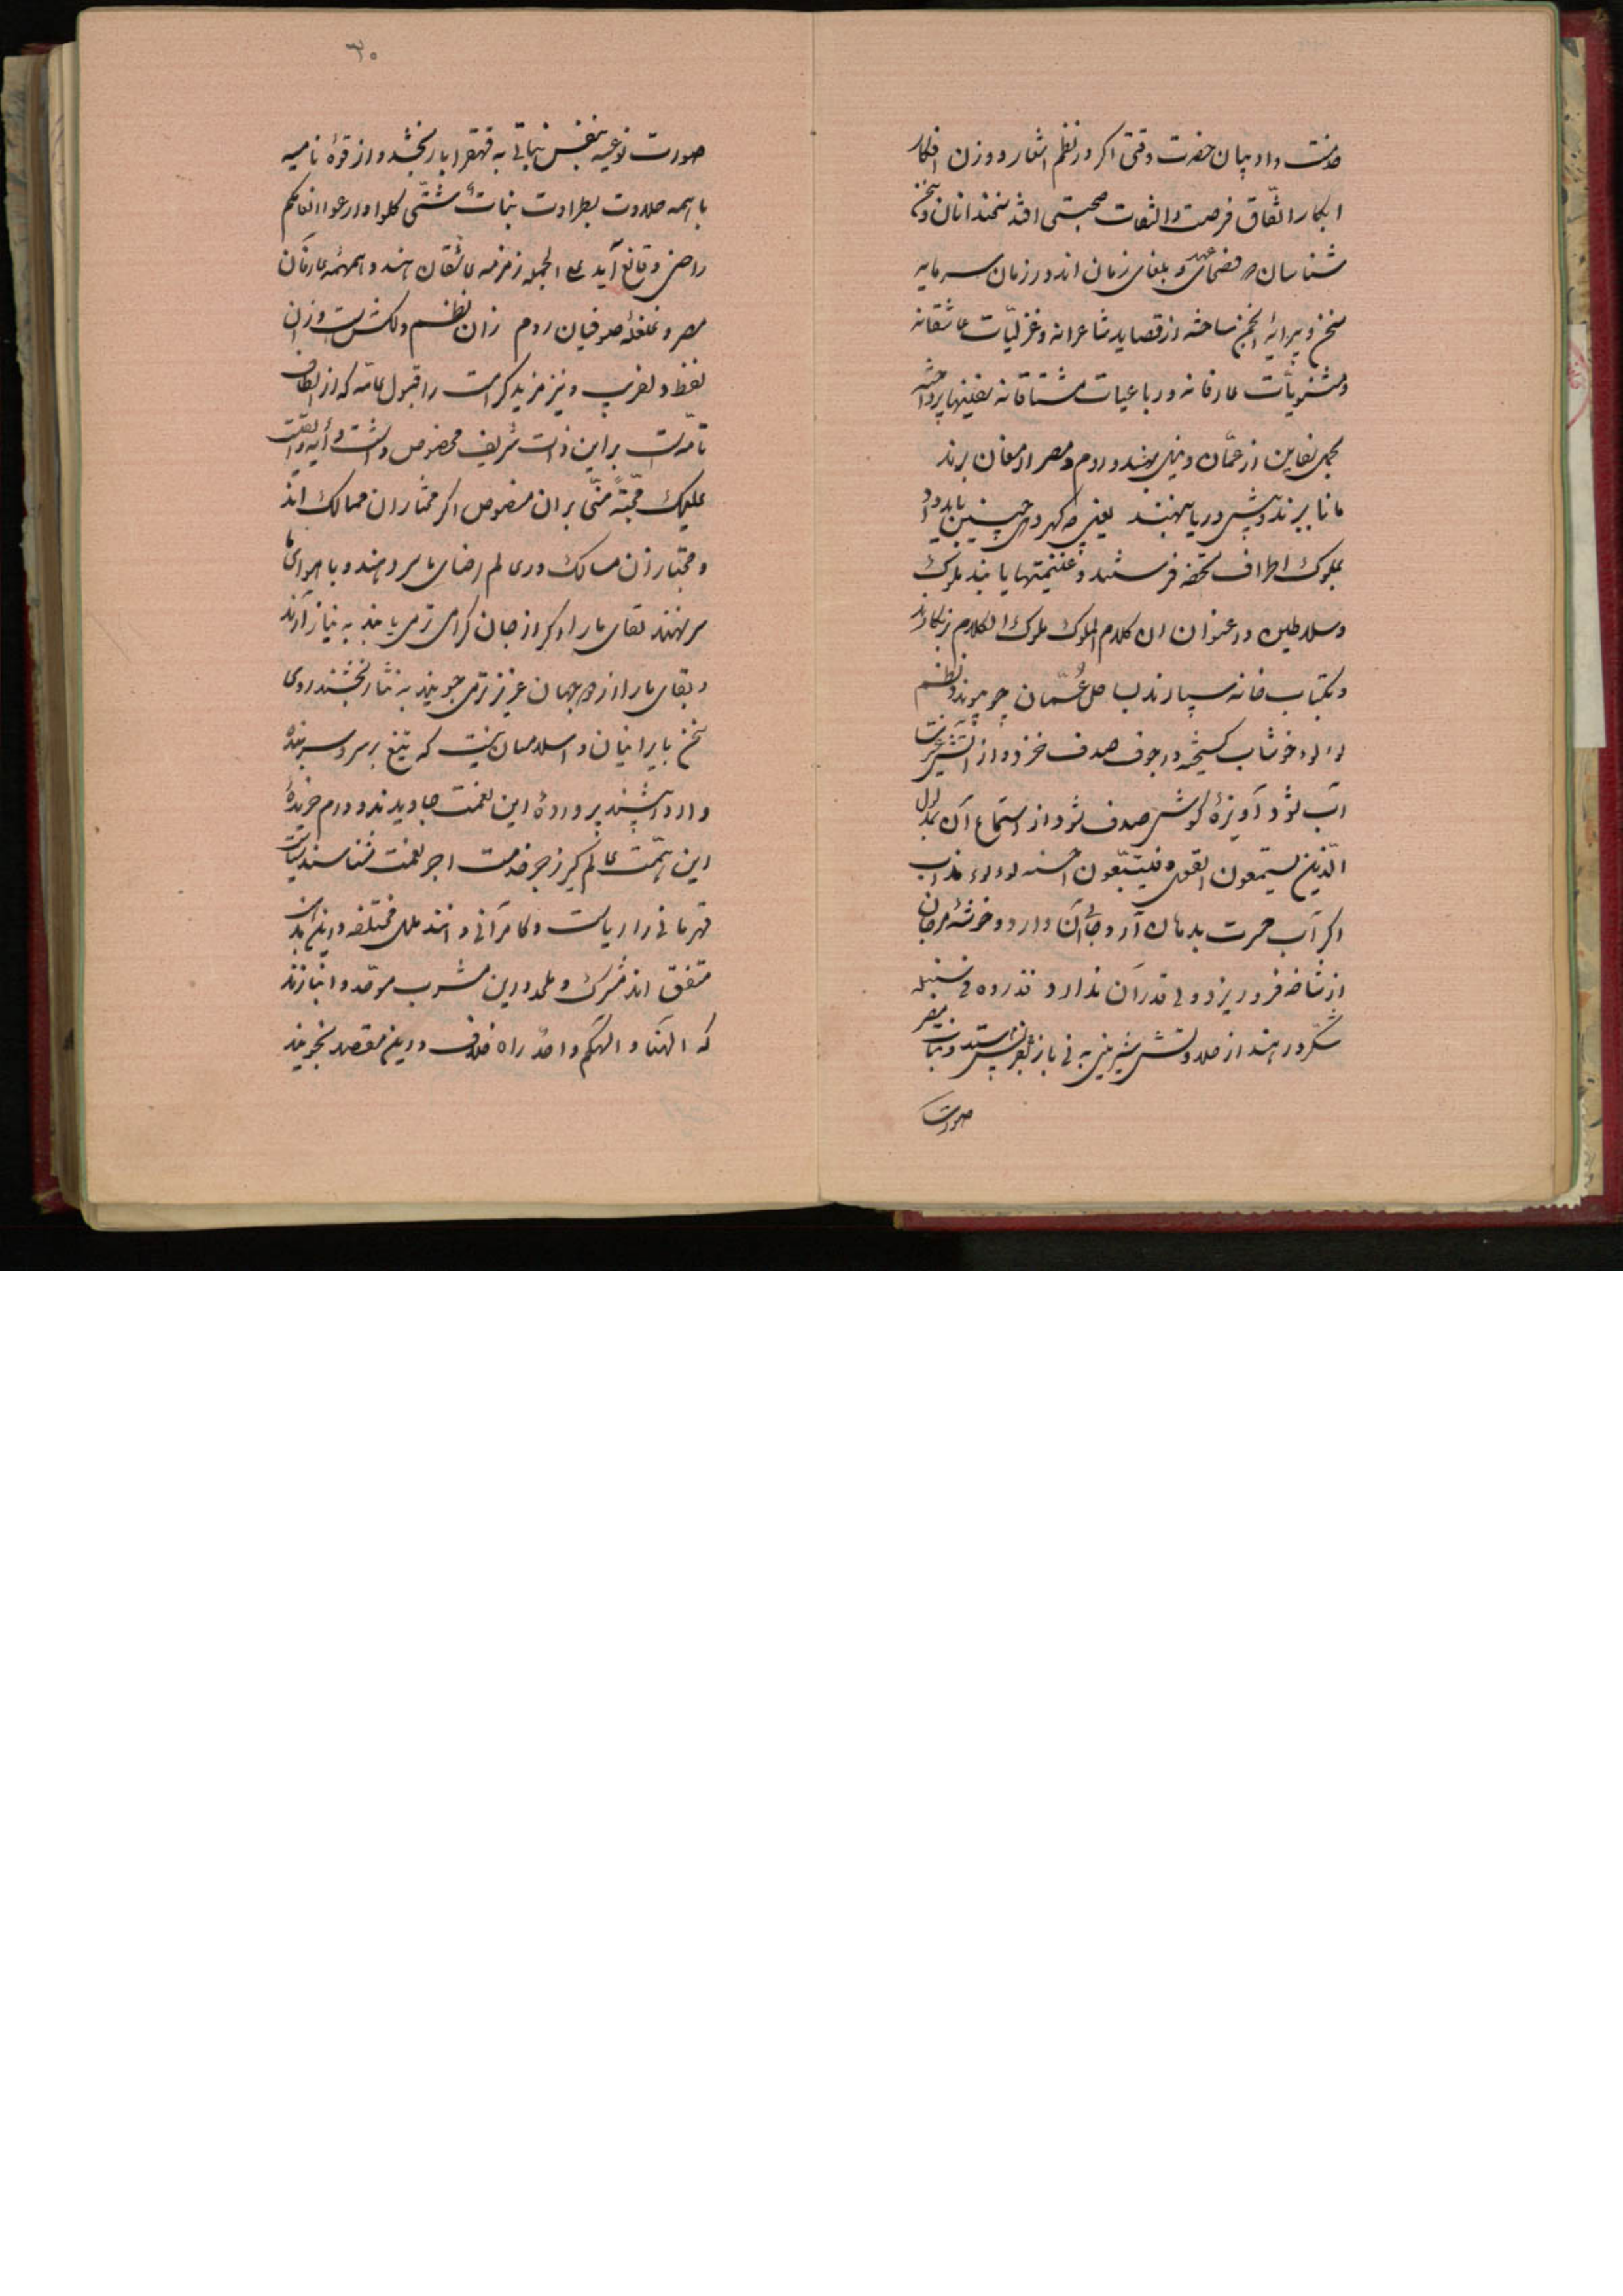 خدمت و ادیبان حضرت وقتی اگر در نظم اشعار و وزن افکار
ابکار اتفاق فرصت و التفات صحبتی افتد سخندانان و سخن
شناسان که فصحای عهد و بلغای زمان اند در زمان سرمایه
سخن و پیرایه انجمن ساخته از قصاید شاعرانه و غزلیّات عاشقانه
و مثنویّات عارفانه و رباعیات مشتاقانه سفینها پرداخته
نفاین از عمّان و نیل بهند و روم و مصر ارمغان برند
مانا برند و پیش دریا نهند یعنی که گهر چنین باید داد
بملوک اطراف تحفه فرستند و غنیمتها یابند ملوک
و سلاطین در عنوان ان کلام الملوک ملوک الکلام نگارند
و بکتاب خانه سپارند بساحل عُمّان چو برند و نظم
لؤلؤء خوشاب گسیخته در جوف صدف خزد و از تشویر
آب شود آویزهٔ گوش صدف شود از استماع آن بمدلول
الّذین یستمعون القول فیتبّعون احسنه لؤلؤء مذاب
اگر آب حسرت بدهان آرد جای آن دارد و خوشهٔ مرجان
از شاخه فرو ریزد ولی قدر آن ندارد فذروه فی سنبله
شکّر در هند از حلاوتش شیرینی به نی باز پس فرستد و نبات مصر
صورت
۳۰
صورت نوعیه بنفس نباتی به قهقرا باز بخشد و از قوهٔ نامیه
با همه حلاوت بطراوت نبات شتّی کلوا وارعوا انعامکم
راضی و قانع آید علی الجمله زمزمه عاشقان هند و همهمهٔ عارفان
مصر و غلغلهٔ صوفیان روم ازان نظم دلکش است و زان
لفظ دلفریب و نیز مزید کرامت را قبول عامّه که از الطاف
تامّه است بر این ذات شریف مخصوص داشت و آیه و القیت
علیک محبّةً منّی بران منصوص اگر مختاران ممالک اند
و مجتازان مسالک در عالم رضای ما سر دهند و با هوای ما
سر نهند لقای ما را که از جان گرامی تر می یابند به نیاز آرند
و بقای ما را از جهان عزیزتر می جویند به نثار بخشند روی
سخن با ایرانیان و اسلامیان نیست که تیغ بر سر و سر بنده
وار در پیشند پروردهٔ این نعمت جاویدند و درم خریدهٔ
این همّت عالم گیر زجر خدمت اجر نعمت شناسند سیاست
قهرمانی را ریاست و کامرانی دانند ملل مختلفه درین مذهب
متفق اند مشرک و ملحد درین مشرب موحّد و انبازند
که الهنا و الهکم واحدٌ راه خلاف درین مقصد نجویند